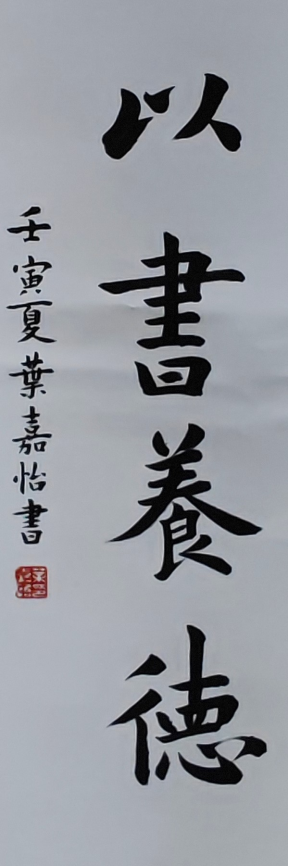 以書養德
壬寅夏葉嘉怡書